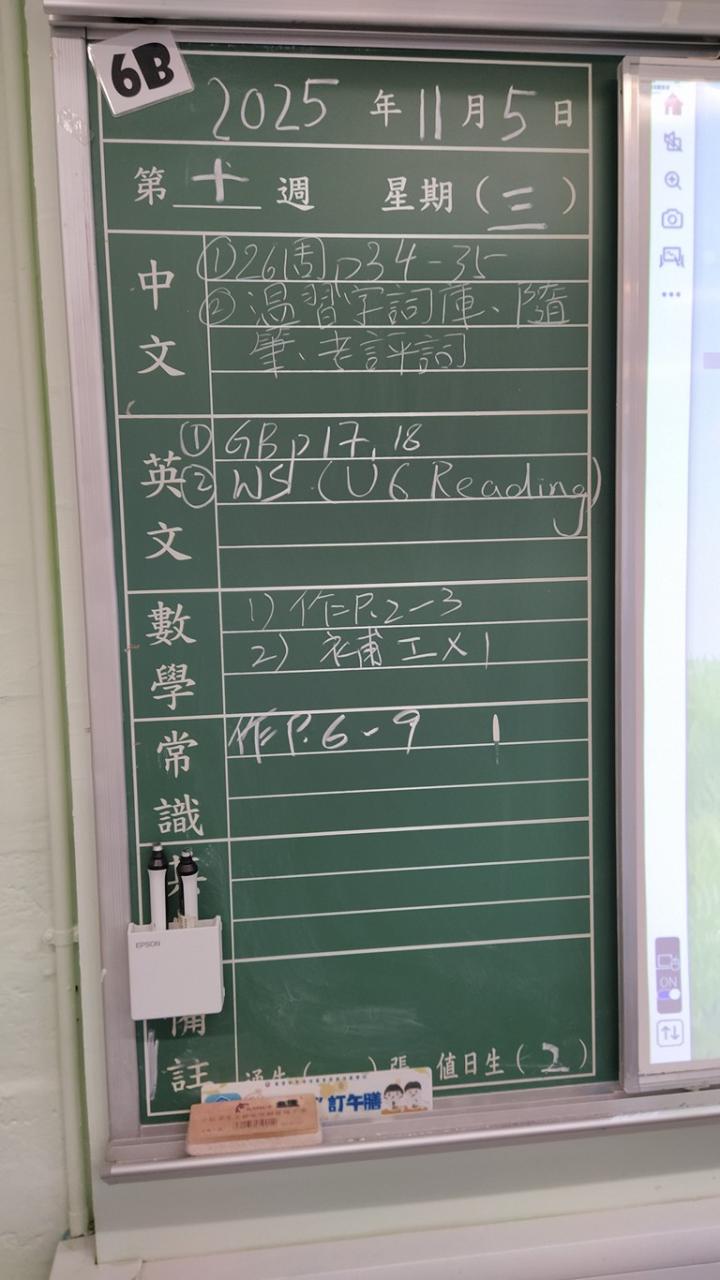 6B
2025 年 11 月 5 日
第 十 週 星期 ( 三 )
中文
①26周 p34-35
② 温習字詞庫、隨
筆、老評詞
英文
① GB p17, 18
② WS (U6 Reading)
數學
1) 作P.2-3
2) 補工X1
常識
作P.6-9
EPSON
備註
通告 ( ) 張 值日生 ( 2 )
訂午膳
ON